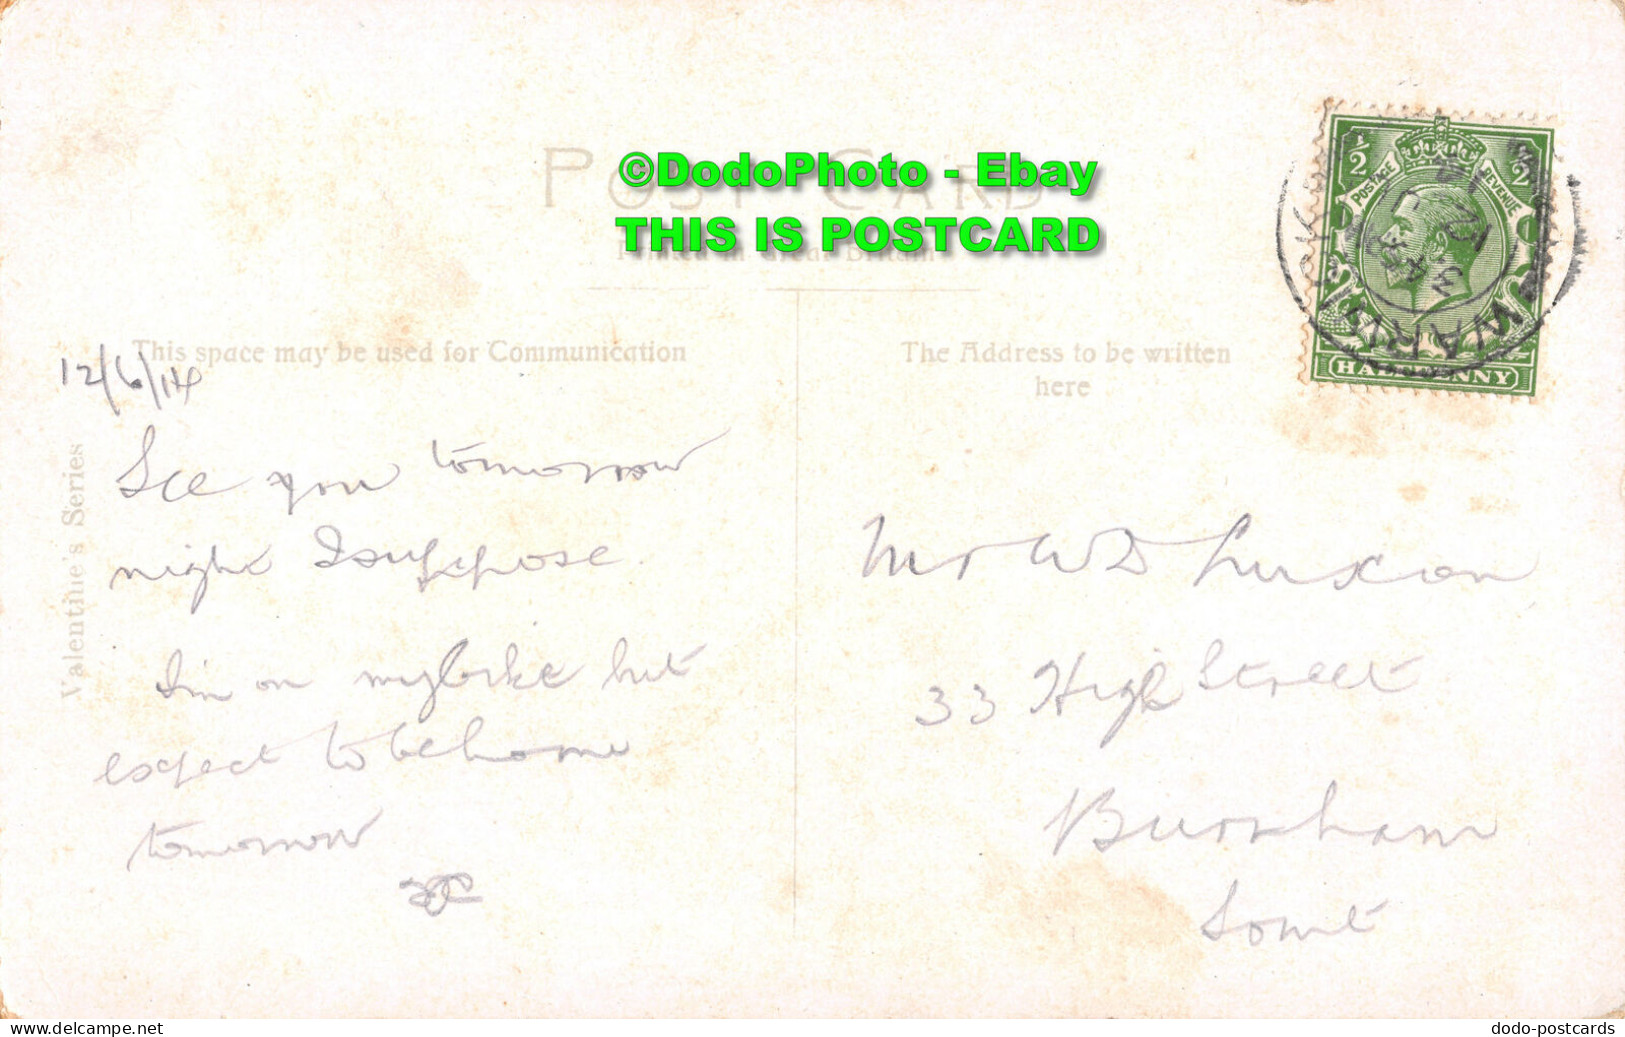 POST CARD
©DodoPhoto - Ebay
THIS IS POSTCARD
Printed in Great Britain
This space may be used for Communication
The Address to be written
here
Valentine's Series
½ ½
POSTAGE REVENUE
HALFPENNY
WARWI
12/6/14
See you tomorrow
night I suppose.
I'm on my bike but
expect to be home
tomorrow
Mr W D Luxon
33 High Street
Burnham
Somt
www.delcampe.net
dodo-postcards